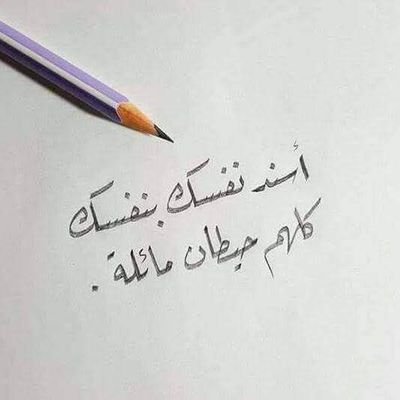 أسند نفسك بنفسك
كلهم حيطان مائلة .